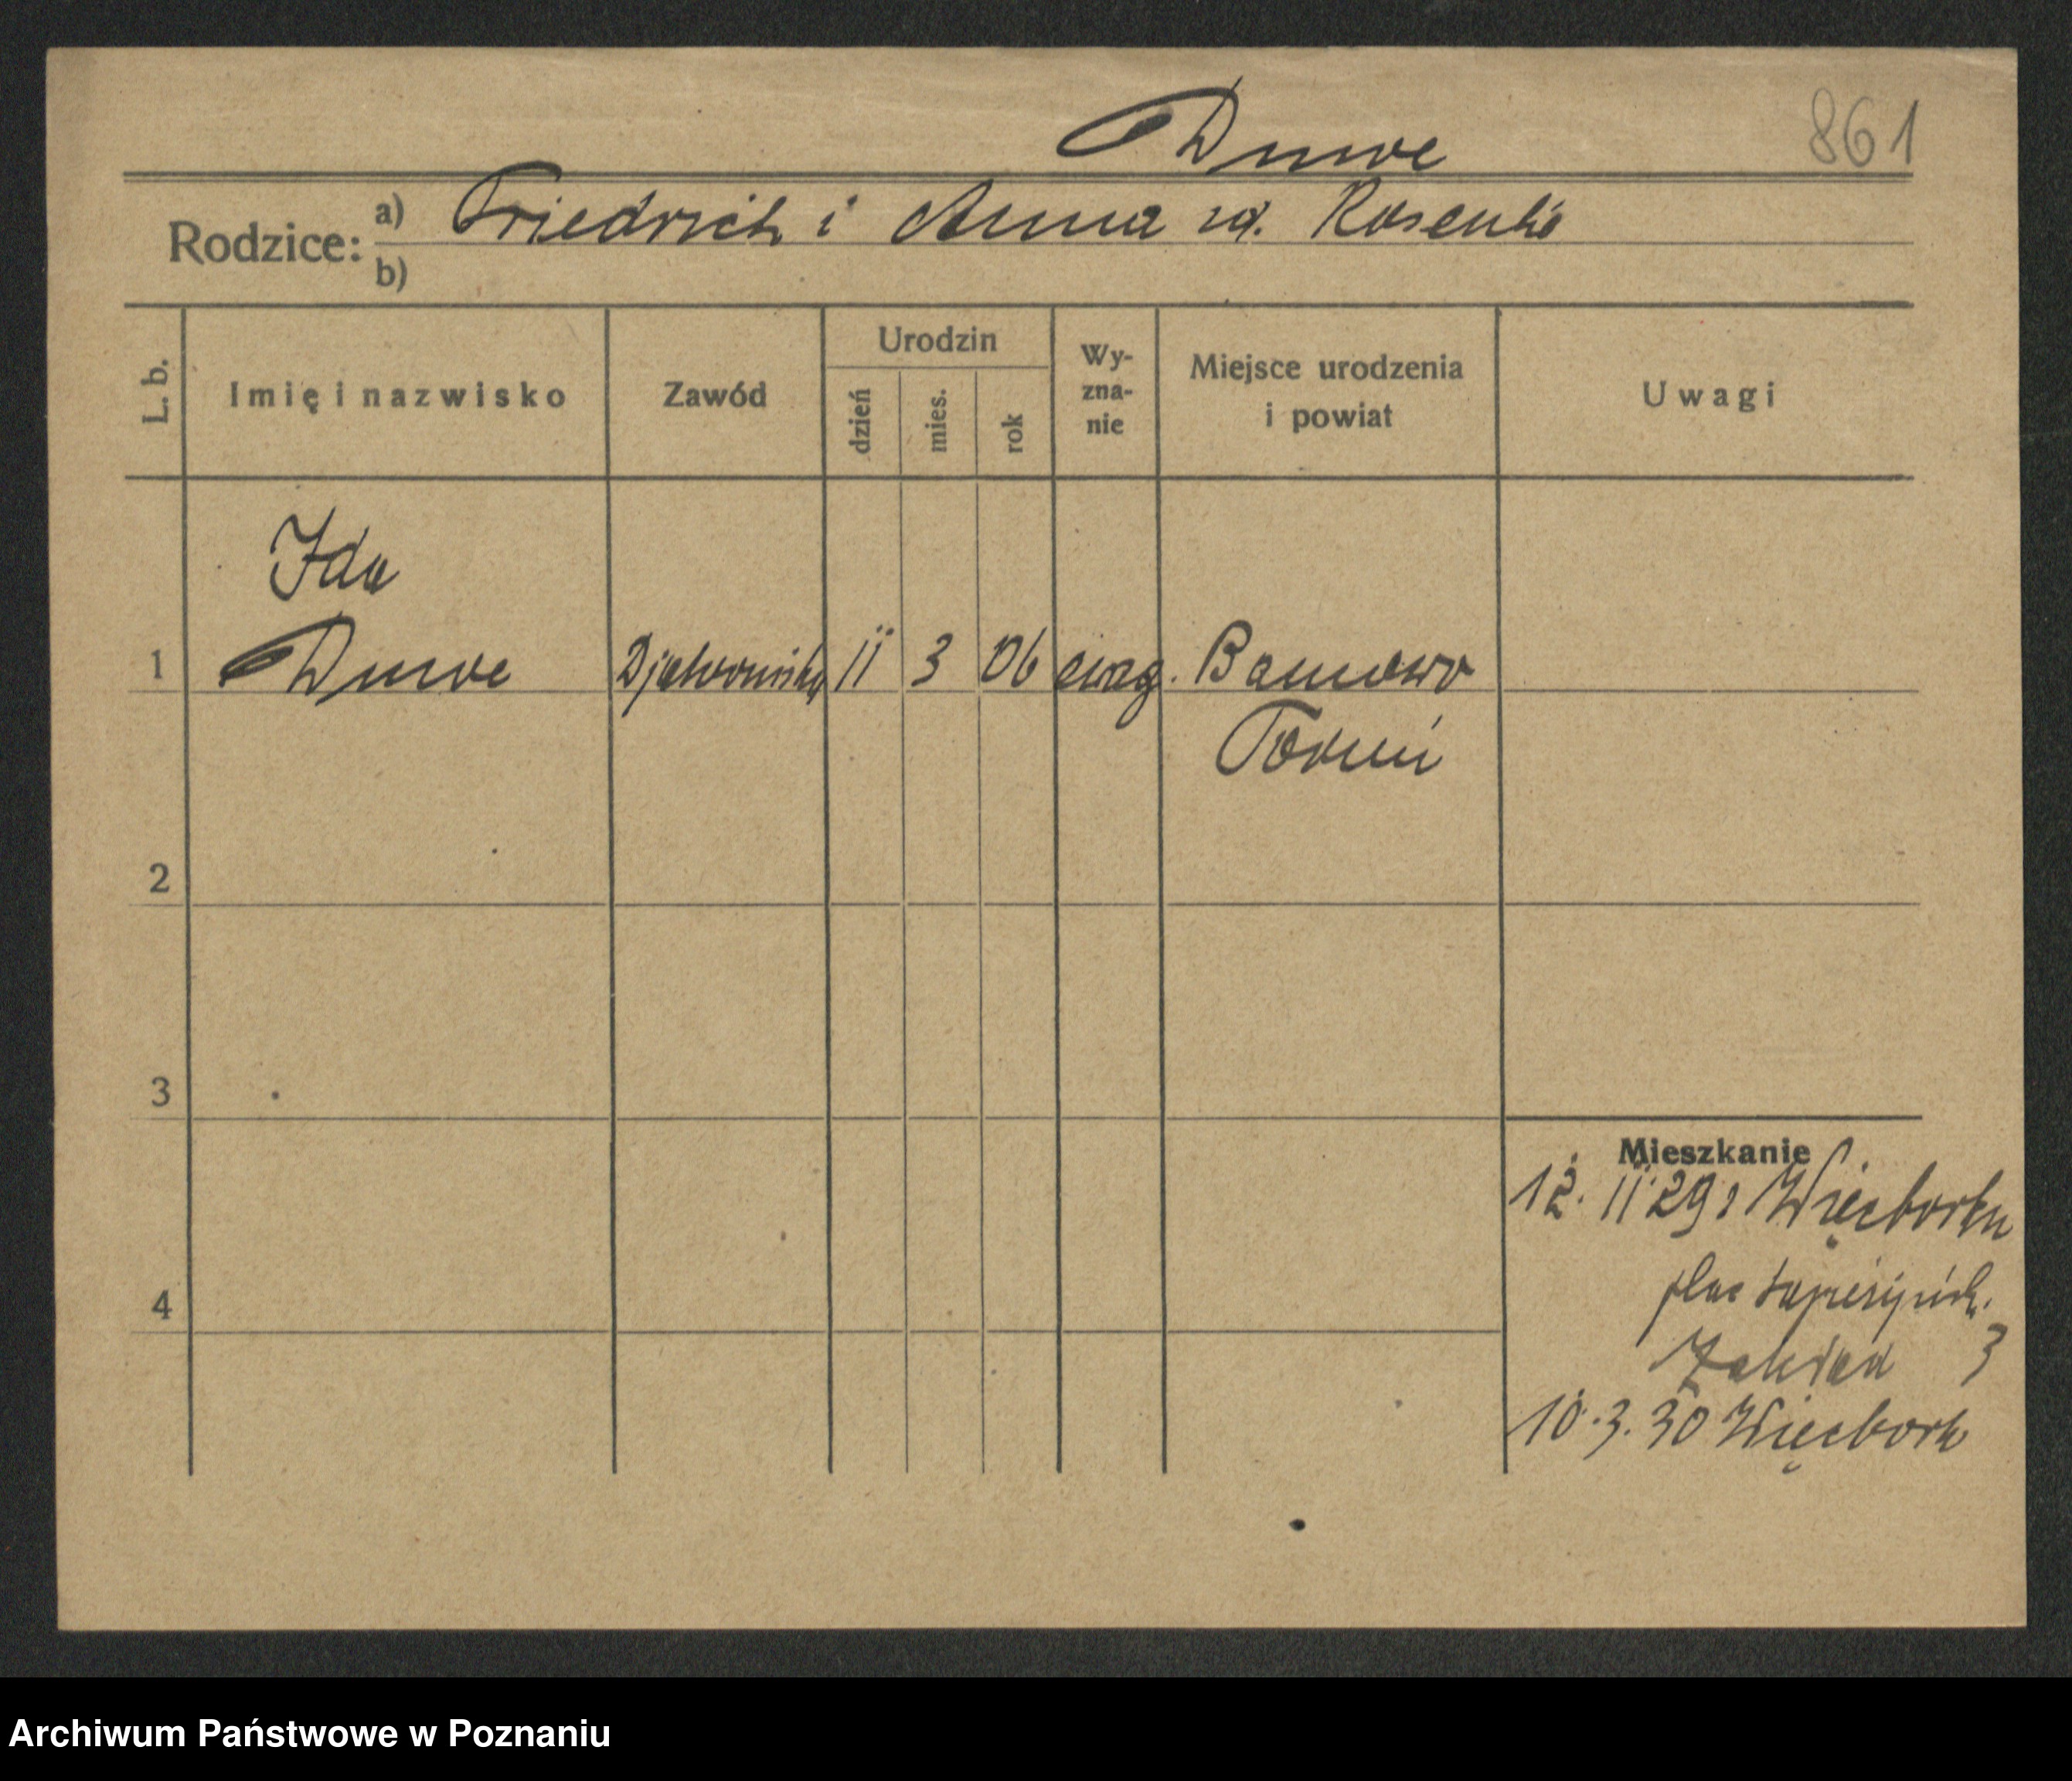 Duwe 861
Rodzice: a) Friedrich i Anna zd. Rosenke
b)
L. b. Imię i nazwisko Zawód Urodzin dzień mies. rok Wy-zna-nie Miejsce urodzenia i powiat Uwagi
Ida
1 Duwe Djakoniska 11 3 06 ewag. Toruń
2
3
4
Mieszkanie
12. 11 29 z Więcborku
plac
Zakład 3
10.3.30 Więcbork
Archiwum Państwowe w Poznaniu